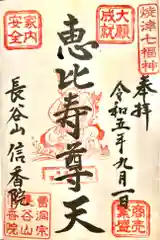 焼津七福神
大願
成就
家内
安全
奉拝
令和五年九月一日
恵比寿尊天
長谷山 信香院
商売
繁盛
曹洞宗
長谷山
信香院